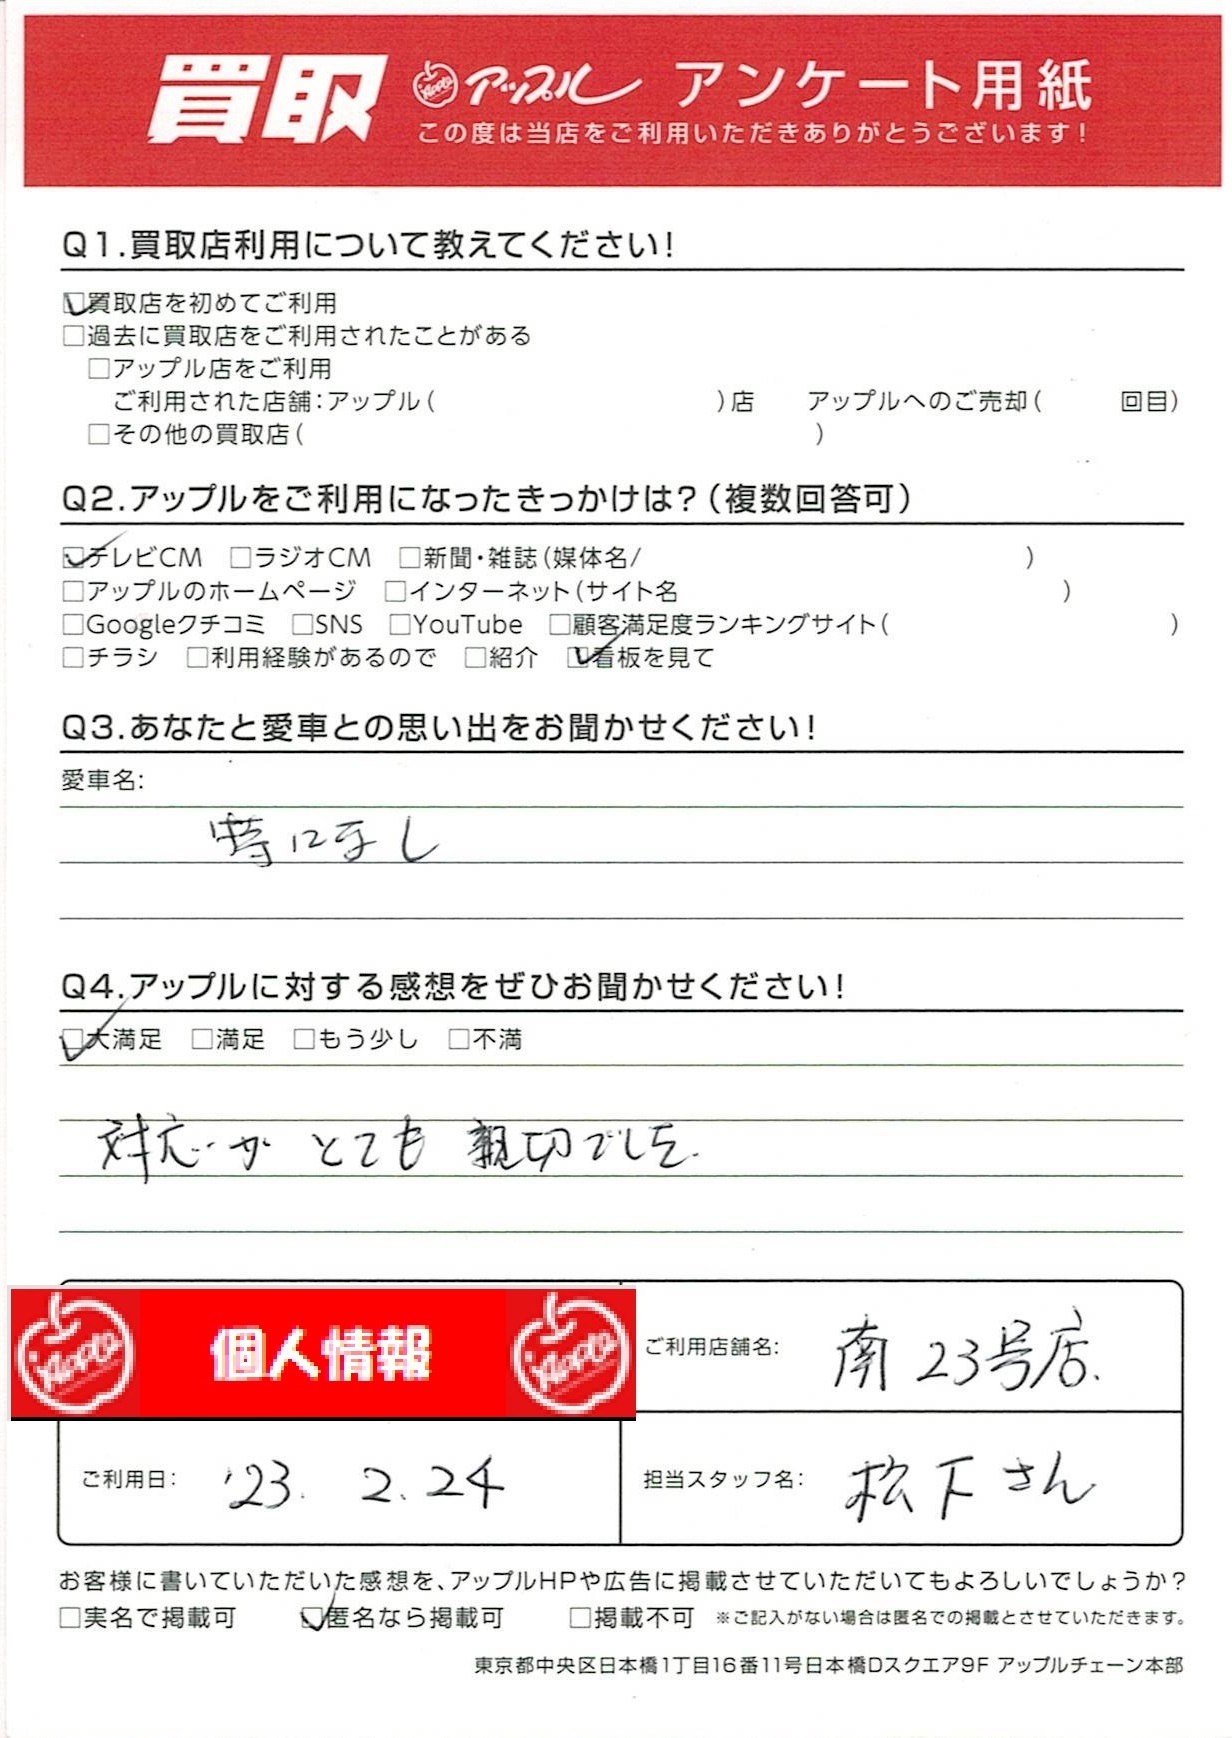 買取 Apple アップル アンケート用紙
この度は当店をご利用いただきありがとうございます!
Q1.買取店利用について教えてください!
☑買取店を初めてご利用
□過去に買取店をご利用されたことがある
□アップル店をご利用
ご利用された店舗:アップル( )店 アップルへのご売却( 回目)
□その他の買取店( )
Q2.アップルをご利用になったきっかけは?(複数回答可)
☑テレビCM □ラジオCM □新聞・雑誌(媒体名/ )
□アップルのホームページ □インターネット(サイト名 )
□Googleクチコミ □SNS □YouTube □顧客満足度ランキングサイト( )
□チラシ □利用経験があるので □紹介 ☑看板を見て
Q3.あなたと愛車との思い出をお聞かせください!
愛車名:
特になし
Q4.アップルに対する感想をぜひお聞かせください!
☑大満足 □満足 □もう少し □不満
対応が とても 親切でした.
Apple 個人情報 Apple
ご利用店舗名: 南23号店.
ご利用日: '23. 2. 24
担当スタッフ名: 松下さん
お客様に書いていただいた感想を、アップルHPや広告に掲載させていただいてもよろしいでしょうか?
□実名で掲載可 ☑匿名なら掲載可 □掲載不可 ※ご記入がない場合は匿名での掲載とさせていただきます。
東京都中央区日本橋1丁目16番11号日本橋Dスクエア9F アップルチェーン本部